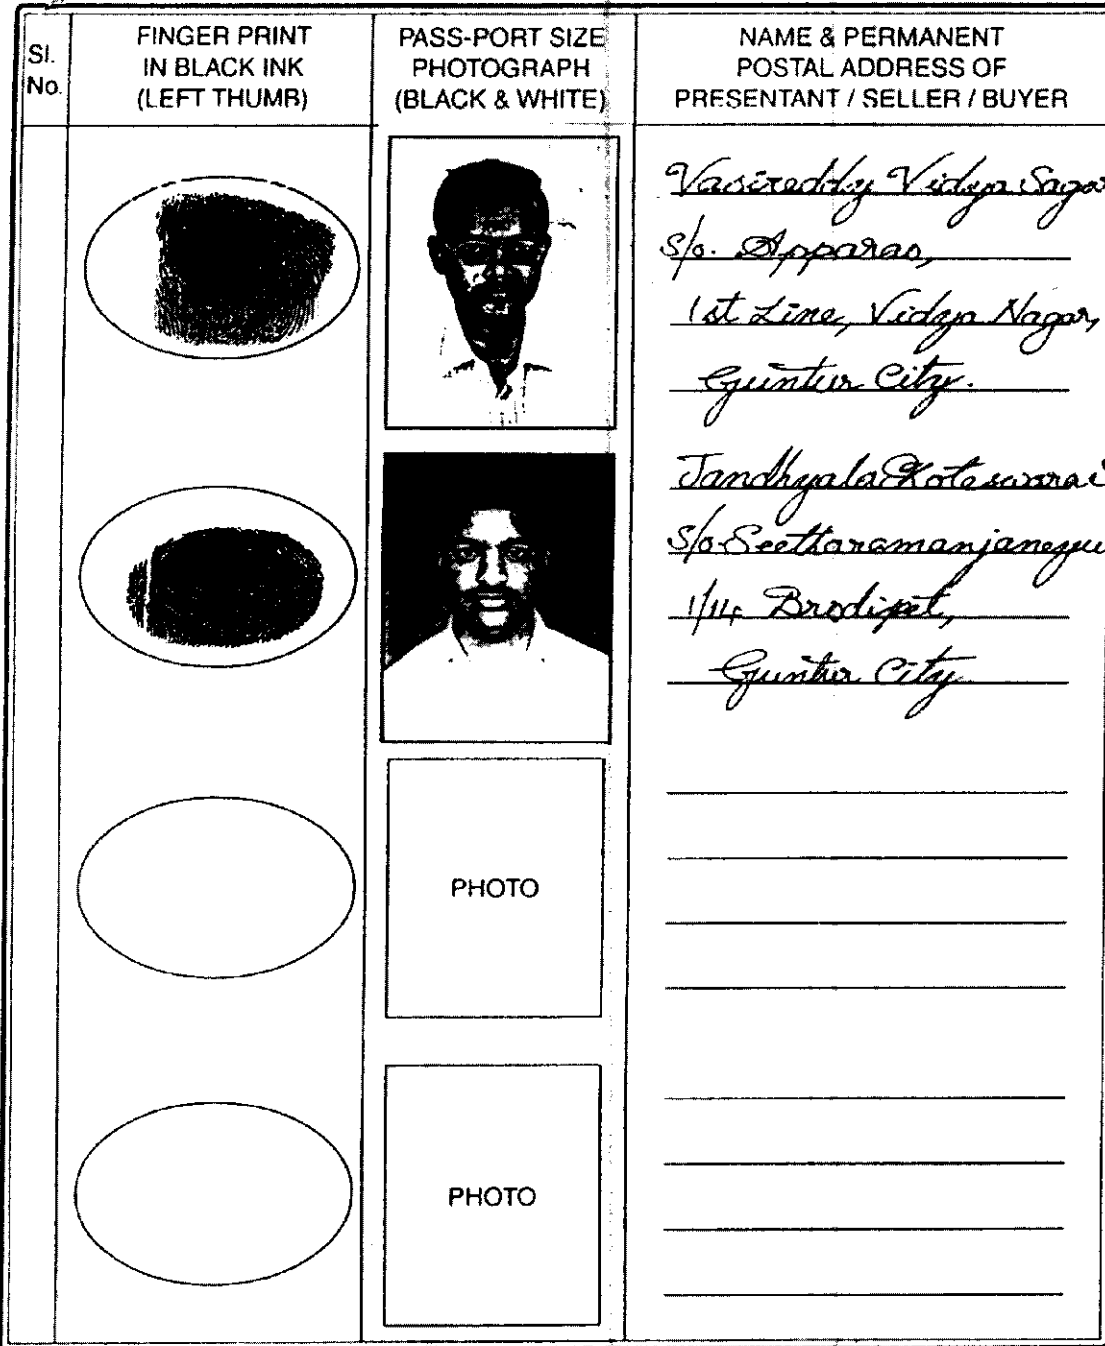 Sl.
No.
FINGER PRINT
IN BLACK INK
(LEFT THUMB)
PASS-PORT SIZE
PHOTOGRAPH
(BLACK & WHITE)
NAME & PERMANENT
POSTAL ADDRESS OF
PRESENTANT / SELLER / BUYER
Vasireddy Vidya Sagar
S/o. Apparao,
1st Line, Vidya Nagar,
Guntur City.
Jandhyala Koteswarai
S/o Seetharamanjaneyu
1/14 Brodipet,
Guntur City
PHOTO
PHOTO